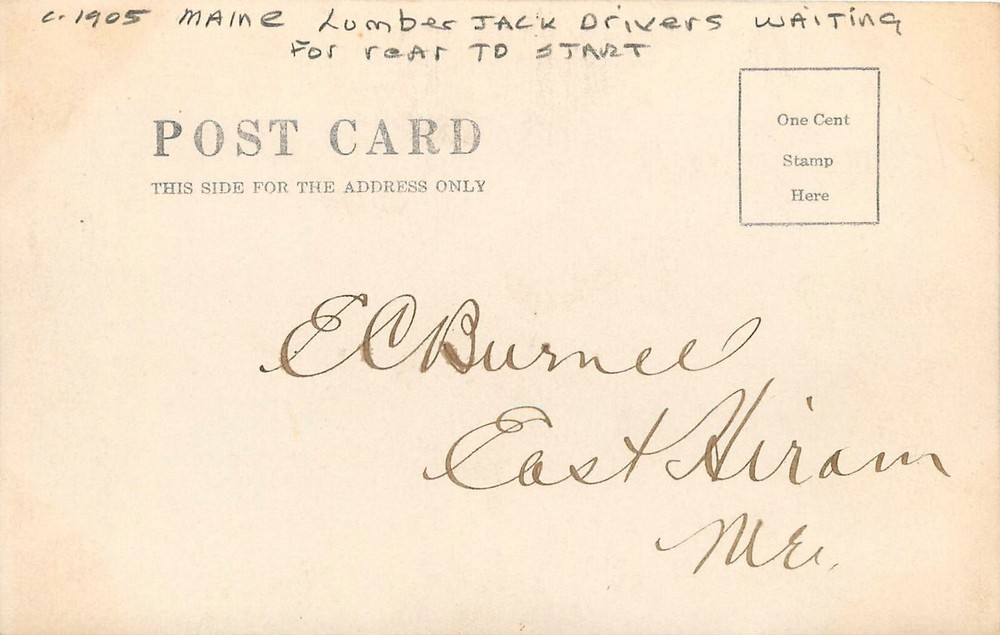 c. 1905 MAINE Lumber JACK Drivers WAITING
For rear TO START
POST CARD
THIS SIDE FOR THE ADDRESS ONLY
One Cent
Stamp
Here
E C Burnell
East Hiram
Me.